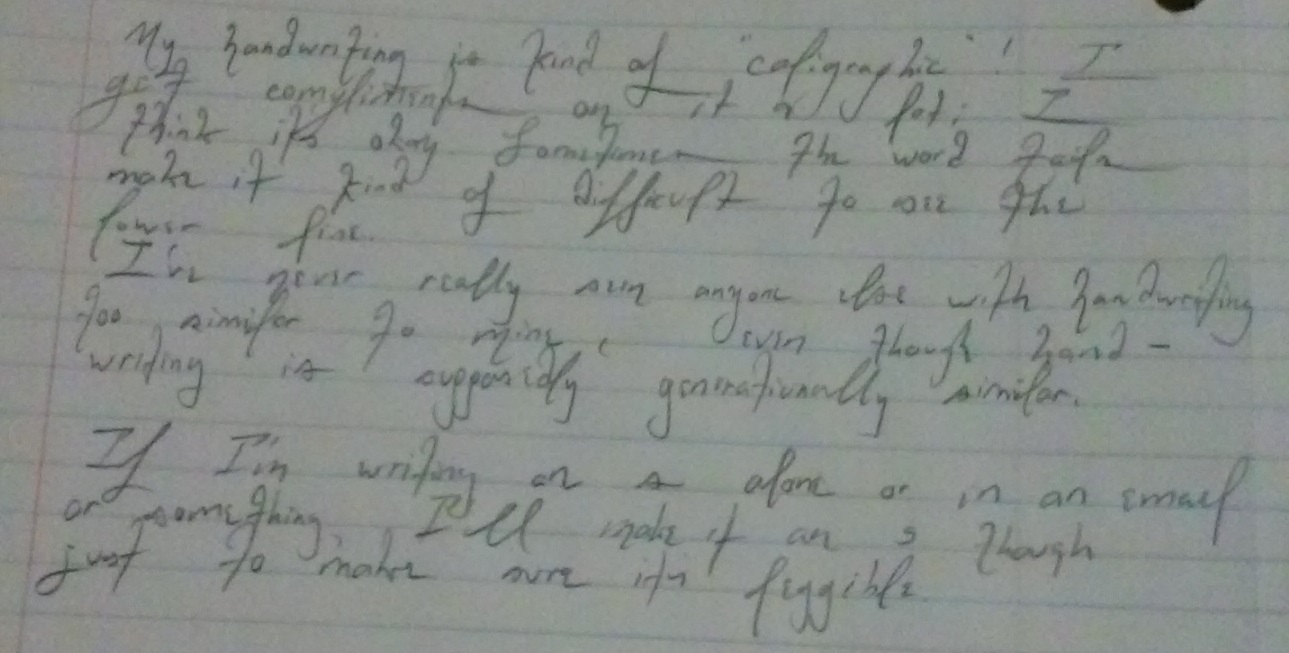 My handwriting is kind of "caligraphic"! I
get compliments on it a lot; I
think it's okay Sometimes the word tails
make it kind of difficult to see the
lower line.
I've never really seen anyone else with handwriting
too similar to mine, even though hand-
writing is supposidly generationally similar.
If I'm writing an s alone or in an email
or something, I'll make it an s though
just to make sure it's leggible.